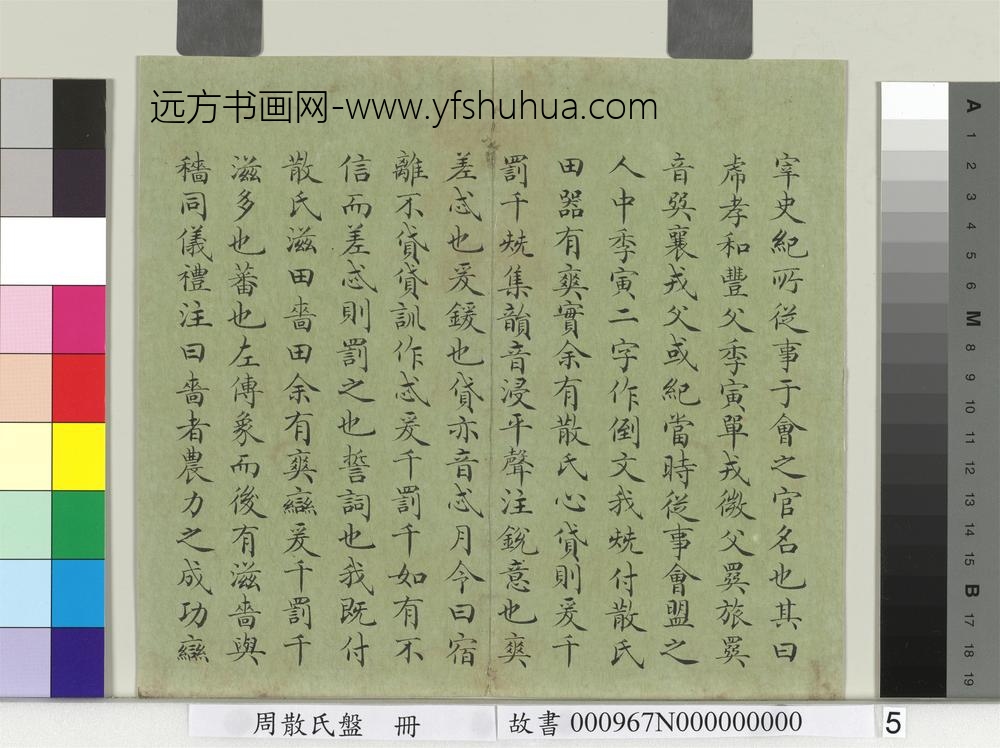 远方书画网-www.yfshuhua.com
宰史紀所從事于會之官名也其曰
虎孝和豐父季寅單戎微父異旅異
音與襄戎父或紀當時從事會盟之
人中季寅二字作倒文我兓付散氏
田器有爽實余有散氏心貸則爰千
罰千兓集韻音浸平聲注銳意也爽
差忒也爰鍰也貸亦音忒月令曰宿
離不貸貸訓作忒爰千罰千如有不
信而差忒則罰之也誓詞也我既付
散氏滋田嗇田余有爽䜌爰千罰千
滋多也蕃也左傳象而後有滋嗇與
穡同儀禮注曰嗇者農力之成功䜌
周散氏盤 冊
故書 000967N000000000
5
A
1
2
3
4
5
6
M
8
9
10
11
12
13
14
15
B
17
18
19